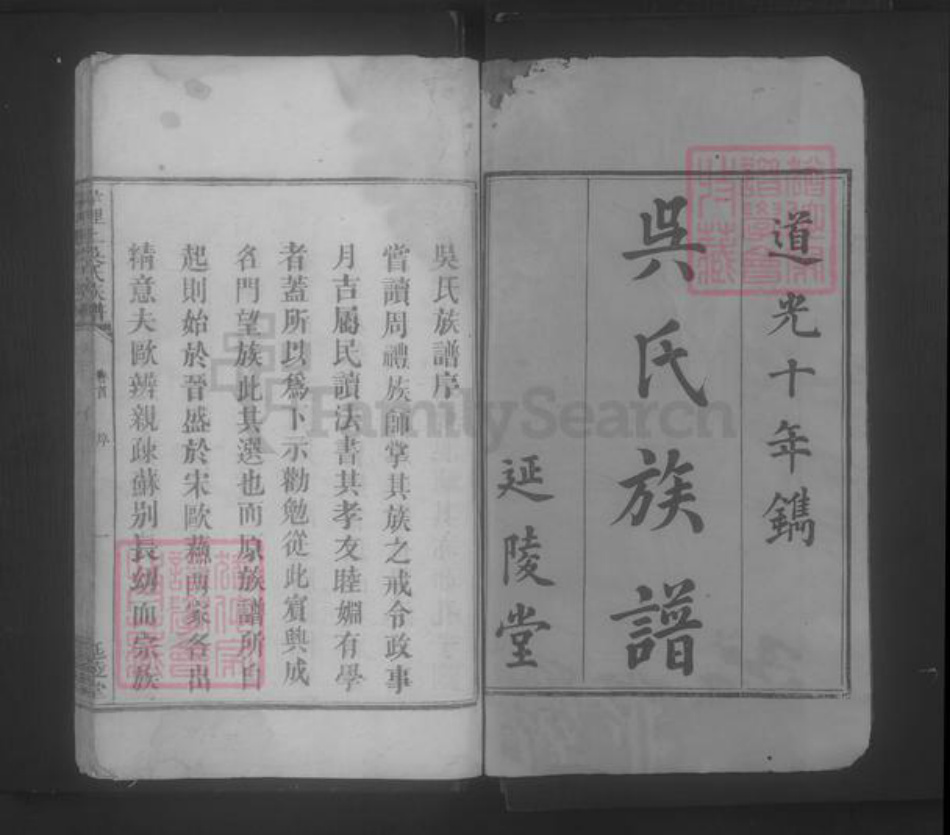 道光十年鐫
吳氏族譜
延陵堂
吳氏族譜序
嘗讀周禮族師掌其族之戒令政事
月吉屬民讀法書其孝友睦婣有學
者蓋所以爲下示勸勉從此賓興成
名門望族此其選也而原族譜所自
起則始於晉盛於宋歐蘓兩家各出
精意夫歐辨親疎蘇别長幼而宗族
吳氏族譜
卷首
序
一
延陵堂
FamilySearch